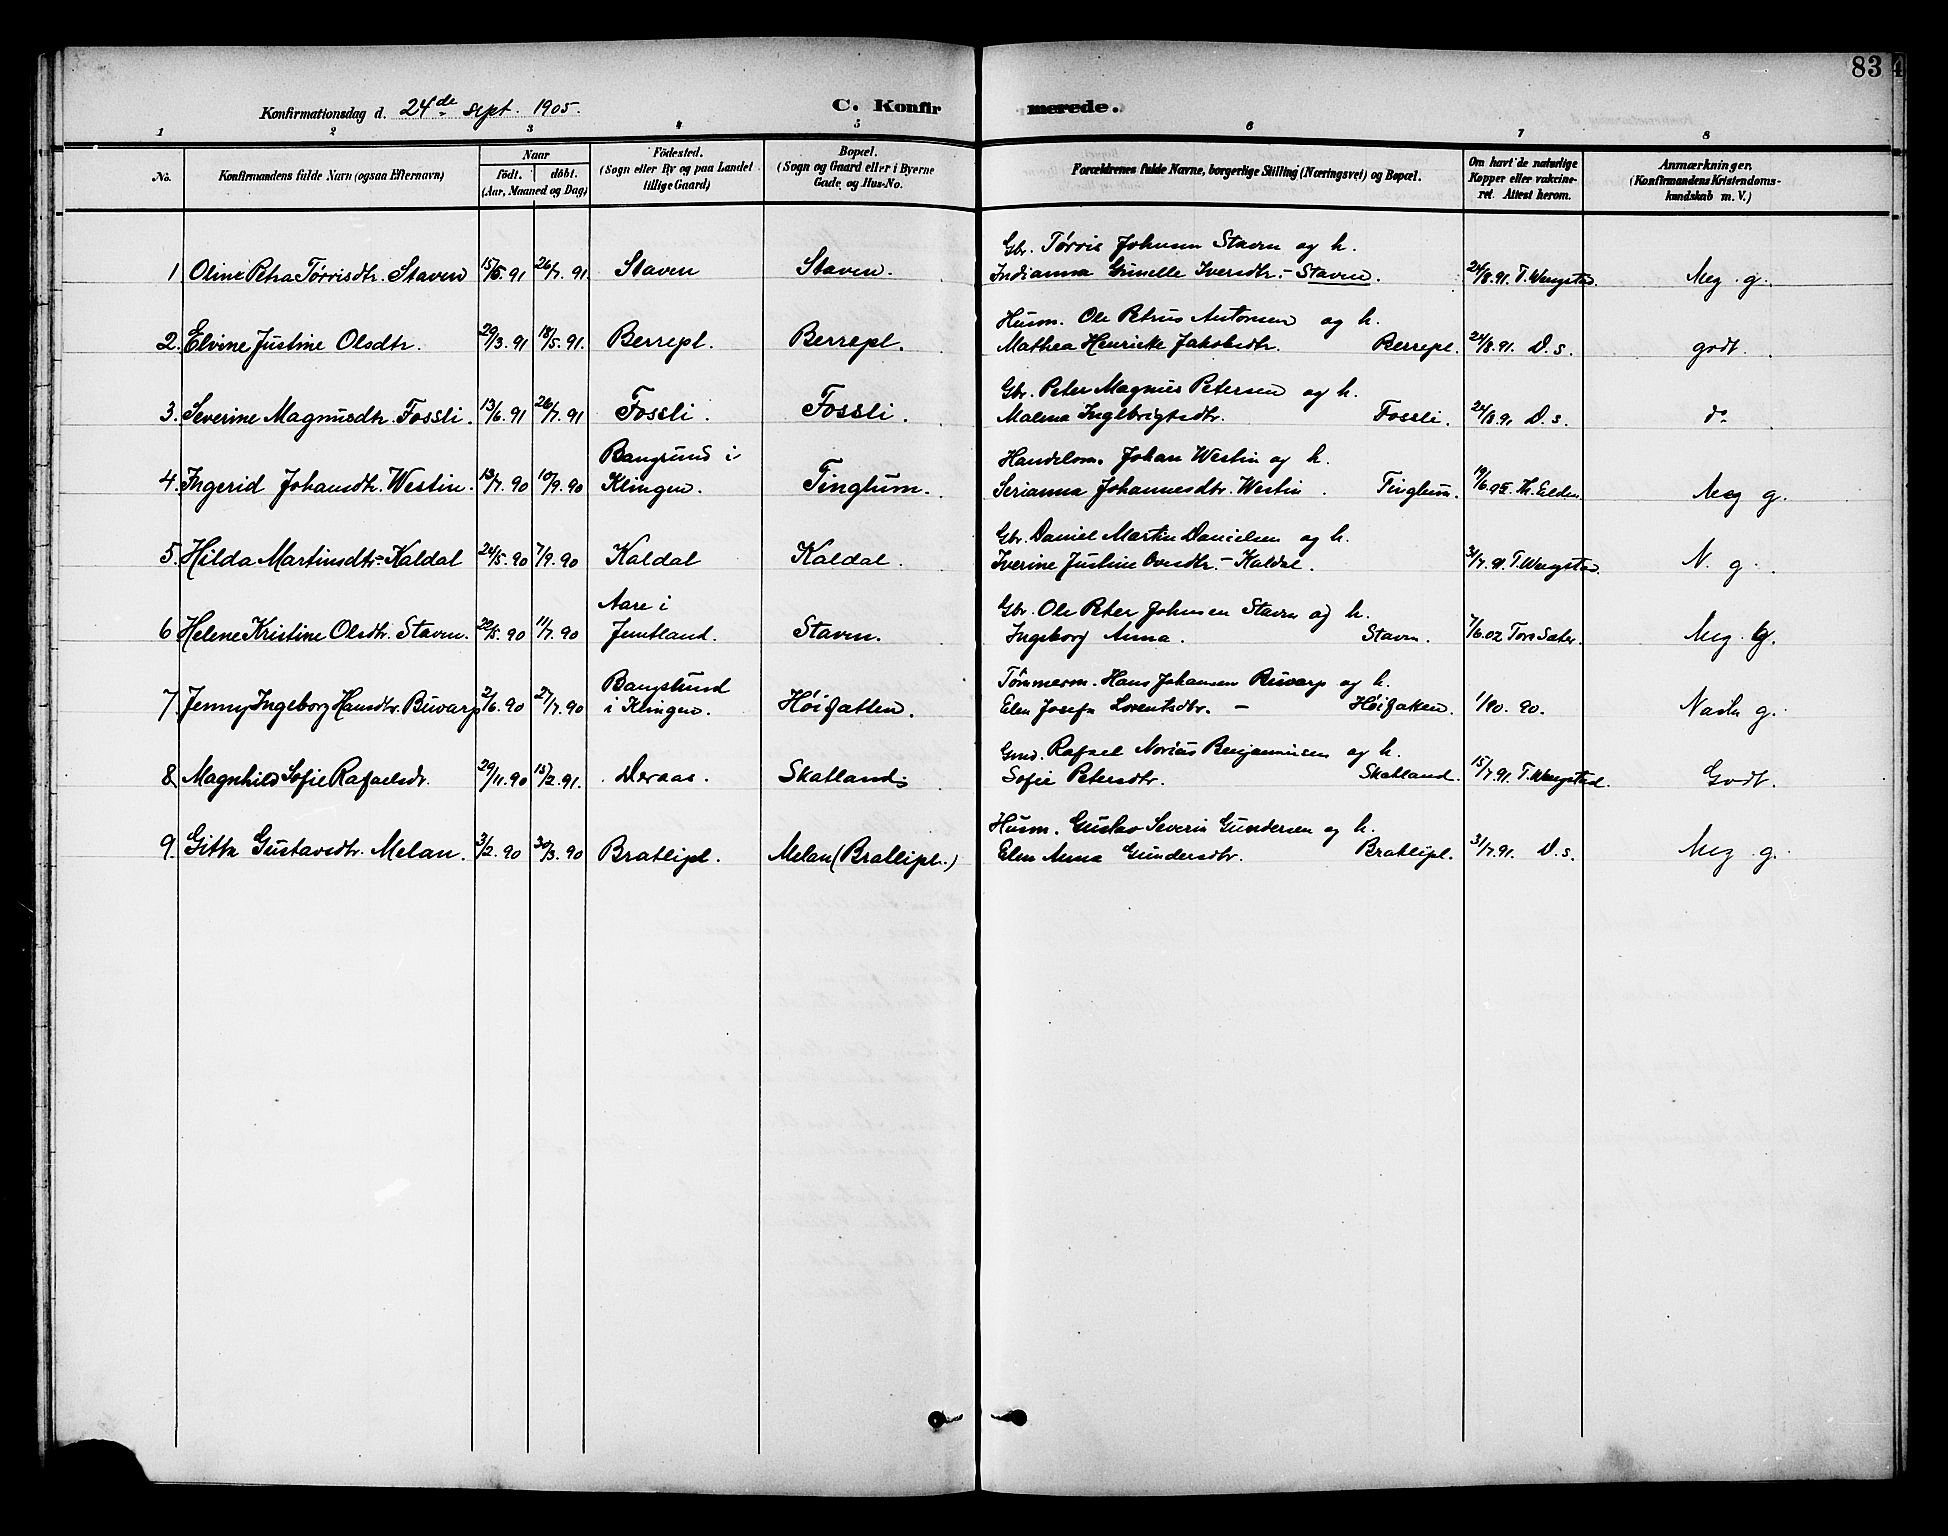 83
Konfirmationsdag d. 24de sept. 1905.
C. Konfirmerede.
1 2 3 4 5 6 7 8
No. Konfirmandens fulde Navn (ogsaa Efternavn) Naar født. døbt. (Aar, Maaned og Dag) Fødested. (Sogn eller By og paa Landet tillige Gaard) Bopæl. (Sogn og Gaard eller i Byerne Gade og Hus-No. Forældrenes fulde Navne, borgerlige Stilling (Næringsvei) og Bopæl. Om havt de naturlige Kopper eller vakcineret. Attest herom. Anmærkninger. (Konfirmandens Kristendomskundskab m. V.)
Gbr. Tørris Johnsen Staven og h.
1 Oline Petra Tørrisdtr. Staven 15/5 91 26/7 91 Staven Staven. Indianna Gunelle Iversdtr. - Staven. 24/8.91. T. Wengstad. Meg. g.
Husm. Ole Petrus Antonsen og h.
2. Elvine Justine Olsdtr. 29/3 91 18/5 91. Berrepl. Berrepl. Mathea Henrikke Jakobsdtr. Berrepl. 24/8.91. D. s. godt.
Gbr. Peter Magnus Petersen og h.
3. Severine Magnusdtr. Fossli. 13/6 91 26/7 91 Fossli. Fossli. Malena Ingebrigtsdtr. Fossli. 24/8.91 D. s. do
Bangsund i Handelsm. Johan Westin og h.
4. Ingerid Johansdtr. Westin. 13/7 90 10/9.90 Klingen. Tinglum. Serianna Johannesdtr. Westin. Tinglum. 19/6.95. Th. Eelden Meg g.
Gbr. Daniel Martin Danielsen og h.
5. Hilda Martinsdtr. Kaldal 24/5.90 7/9.90 Kaldal Kaldal. Iverine Justine Ovesdtr. - Kaldal. 31/7.91. T. Wengstad. N. g.
Aare i Gbr. Ole Peter Johnsen Staven og h.
6 Helene Kristine Olsdtr. Staven. 22/5.90 11/7.90 Jemtland. Staven. Ingeborg Anna. Staven. 7/6.02 Tore Sæter. Meg. g.
Bangsund Tømmerm. Hans Johansen Buvarp og h.
7. Jenny Ingeborg Hansdtr. Buvarp 2/6.90 27/7.90 i Klingen. Høifatten. Elen Josefa Lorentsdtr. - 1/90. 90. g.
Rafael Norias Benjaminsen og h.
8. Magnhild Sofie Rafaelsdr. 29/11.90 15/2.91. Deraas. Skatland. Sofie Petersdtr. Skatland. 15/7.91. T. Wengstad. Godt.
Husm. Gustav Severin Gundersen og h.
9. Gitta Gustavsdtr. Melan. 3/2.90 30/3.90 Bratlipl. Melan (Bratlipl.) Elen Anna Gundersdtr. Bratlipl. 31/7.91. D. s. Meg g.